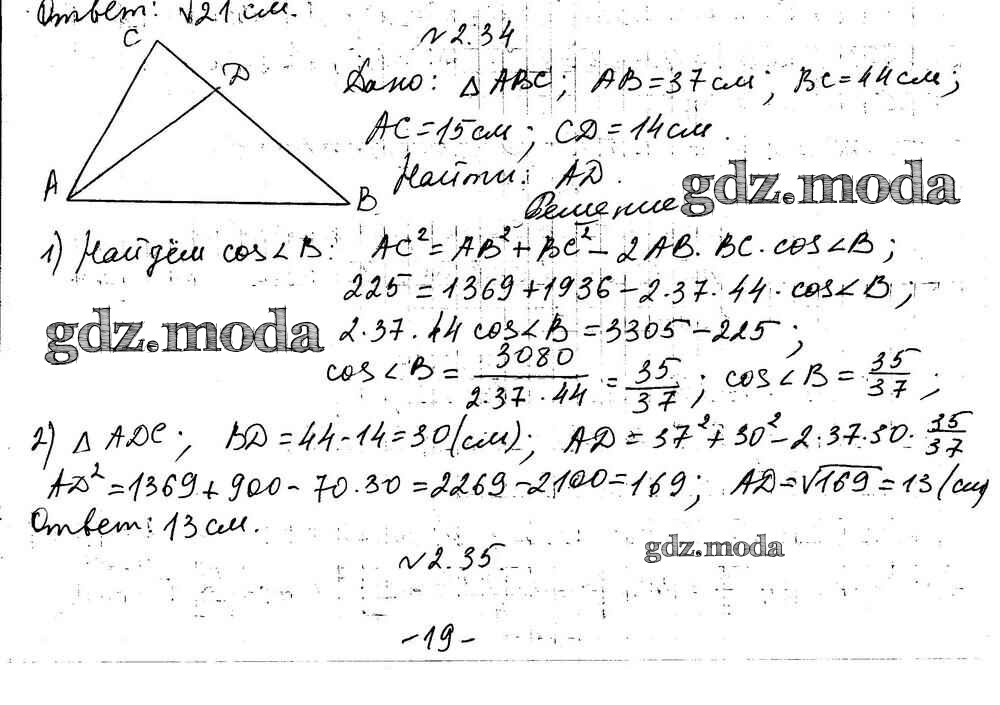 Ответ: √21 см.
№ 2.34
C
D
A
B
Дано: △ ABC; AB = 37 см; BC = 44 см;
AC = 15 см; CD = 14 см.
Найти: AD.
gdz.moda
Решение
1) Найдём cos∠B: AC² = AB² + BC² − 2AB·BC·cos∠B;
225 = 1369 + 1936 − 2·37·44·cos∠B;
gdz.moda
2·37·44 cos∠B = 3305 − 225;
cos∠B = 3080/2·37·44 = 35/37; cos∠B = 35/37;
2) △ ADC; BD = 44 − 14 = 30 (см); AD = 37² + 30² − 2·37·30·35/37
AD² = 1369 + 900 − 70·30 = 2269 − 2100 = 169; AD = √169 = 13 (см)
Ответ: 13 см.
№ 2.35.
gdz.moda
- 19 -